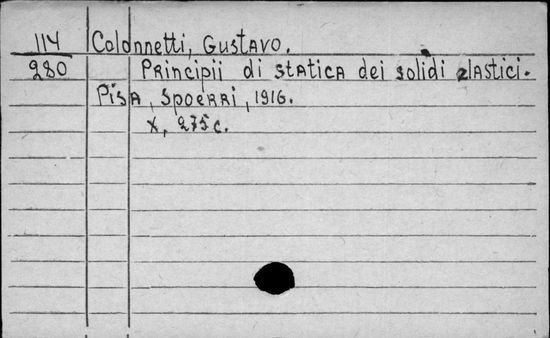 114 Colonnetti, Gustavo.
280 Principii di statica dei solidi elastici.
Pisa, Spoerri, 1916.
X, 275 c.